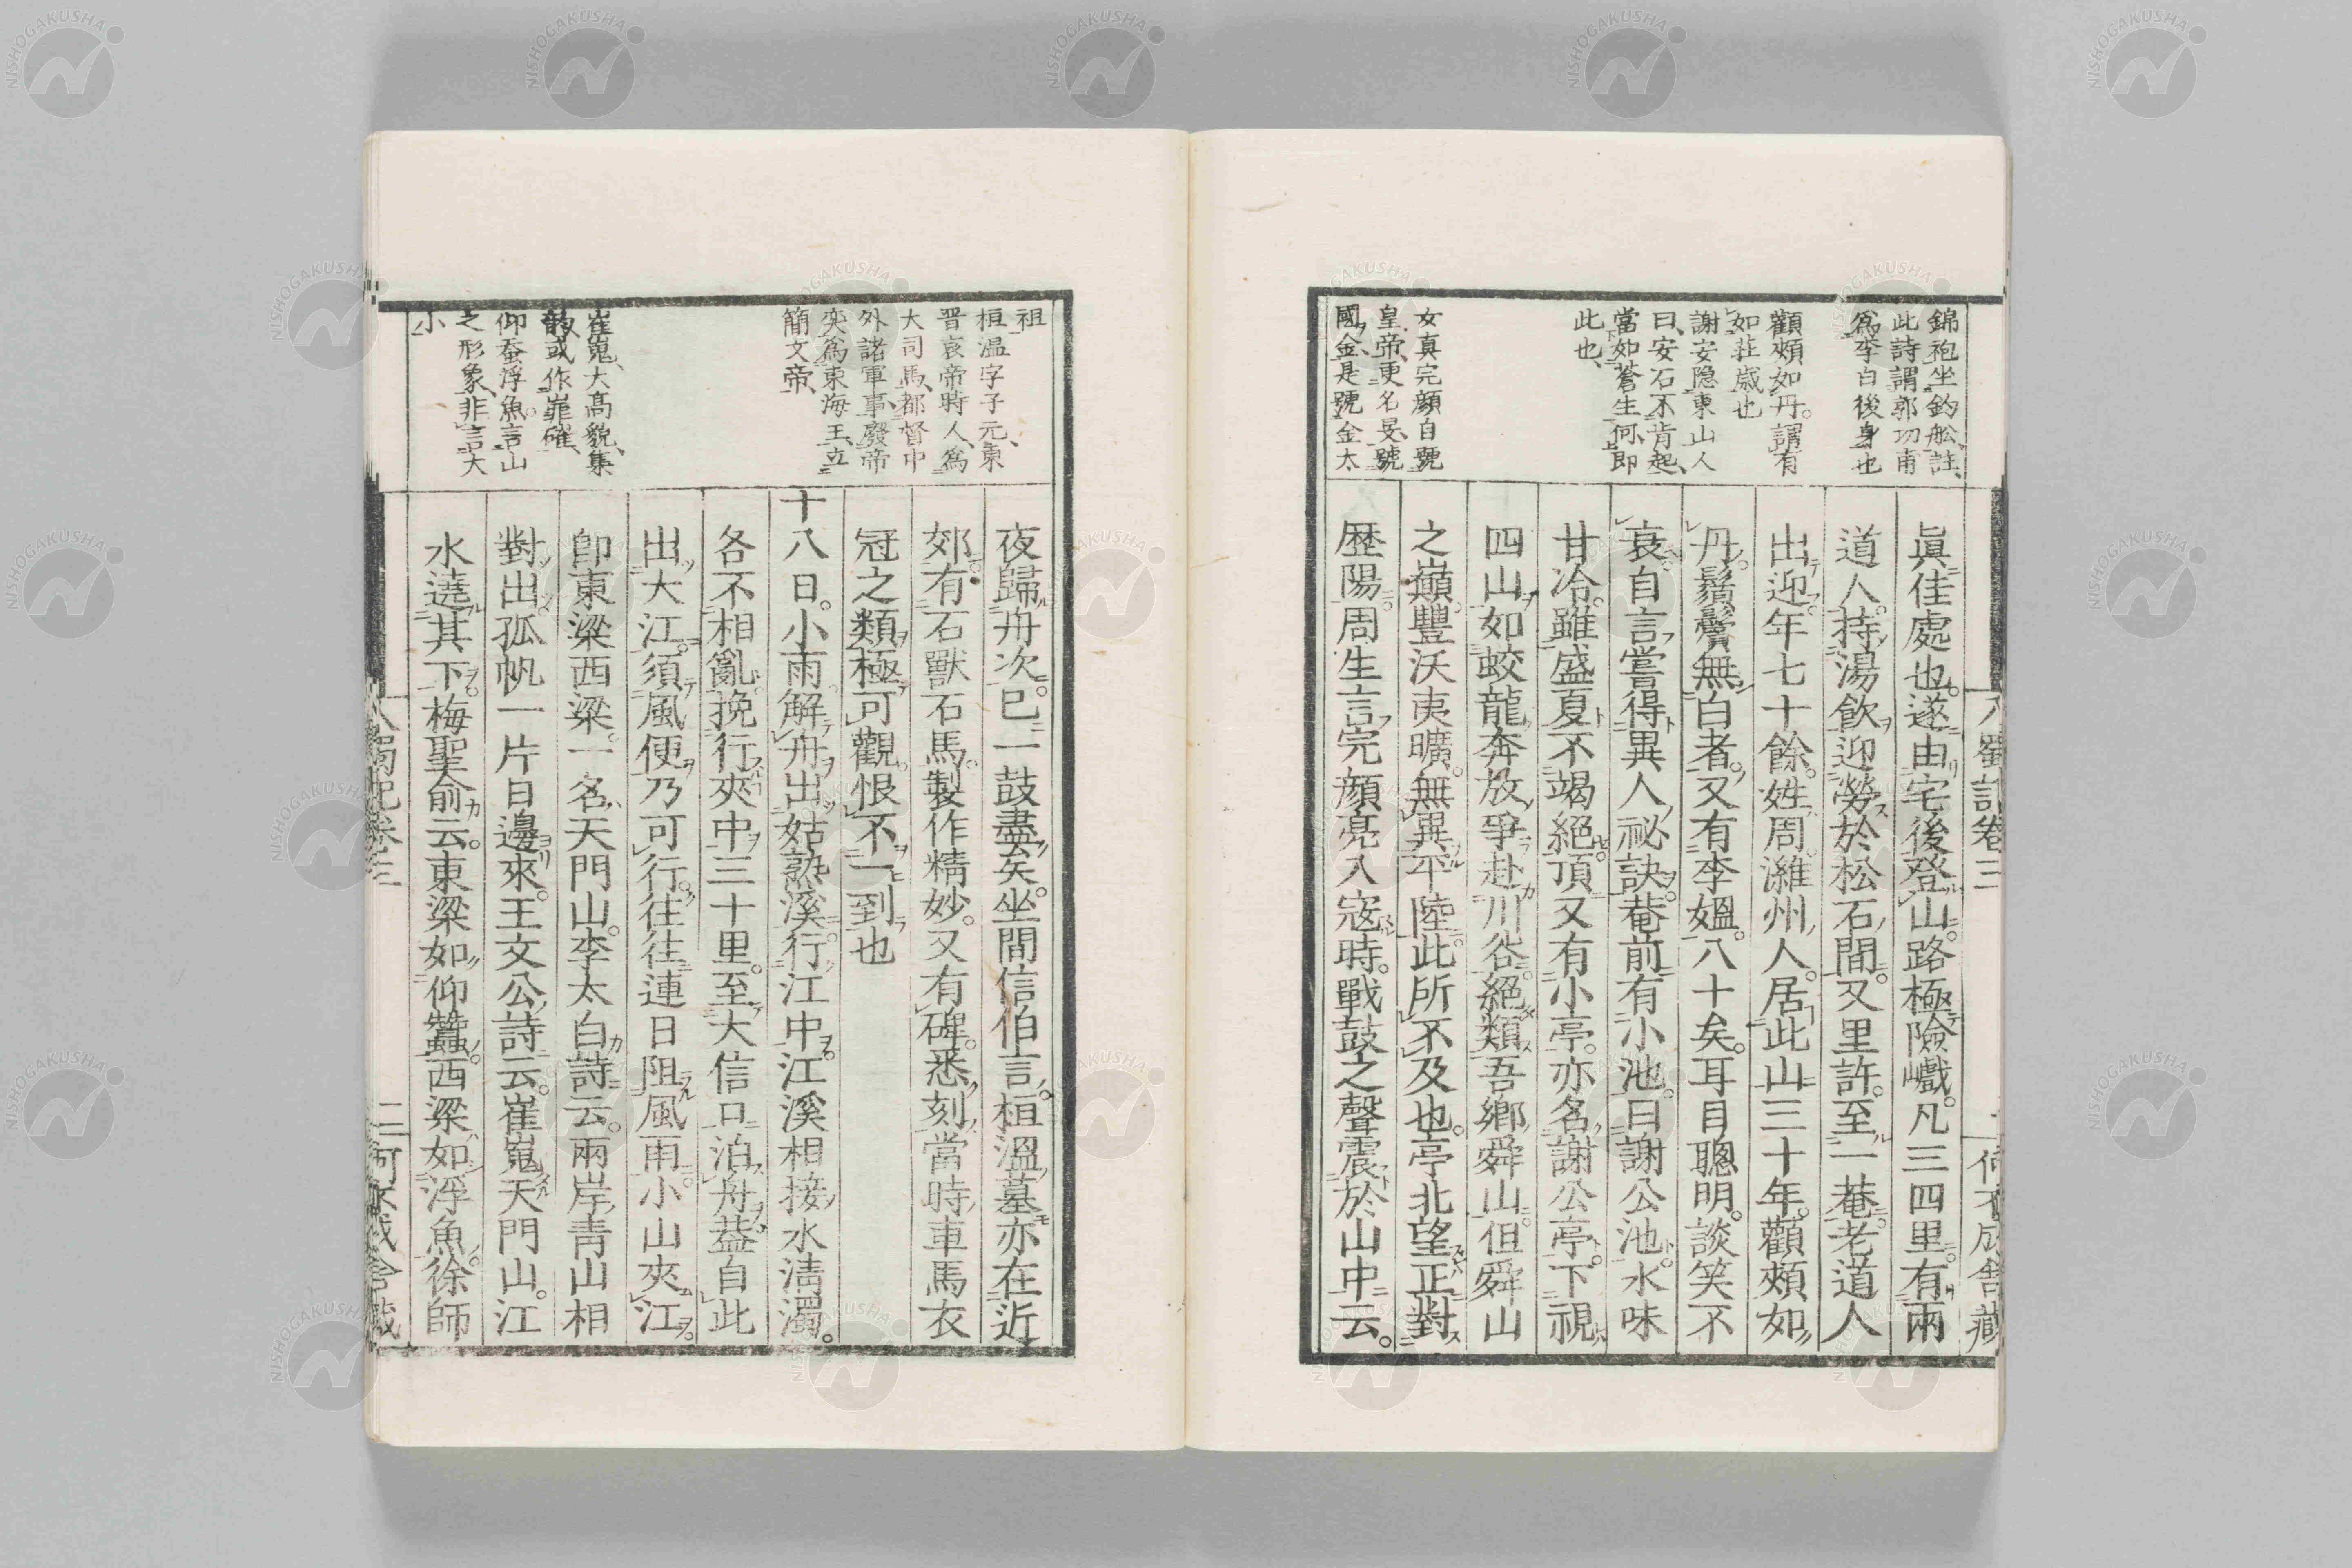 錦袍坐釣舩、註、
此詩謂郭功甫
爲李白後身也
顴頰如丹。謂有
如荘歳也
謝安隠東山人
曰、安石不肯起、
當如蒼生何、即
此也、
女真完顔自號
皇帝、更名旻、號
國金、是號金太
眞佳處也。遂由宅後登山。路極險巇。凡三四里。有兩
道人。持湯飲迎勞於松石間。又里許。至一菴。老道人
出迎。年七十餘。姓周。濰州人。居此山三十年。顴頰如
丹。鬚鬢無白者。又有李媼。八十矣。耳目聰明。談笑不
衰。自言嘗得異人秘訣。菴前有小池。曰謝公池。水味
甘冷。雖盛夏不竭。絕頂又有小亭。亦名謝公亭。下視
四山。如蛟龍奔放爭赴川谷。絕類吾鄉舜山。但舜山
之巔豐沃夷曠。無異平陸。此所不及也。亭北望正對
歷陽。周生言完顔亮入寇時。戰鼓之聲震於山中云。
入蜀記卷三
何不成舎藏
祖
桓温字子元、東
晋哀帝時人、爲
大司馬、都督中
外諸軍事、廢帝
奕爲東海王、立
簡文帝、
崔嵬、大高貌、集
韵或作㠑確、
仰蚕浮魚。言山
之形象、非言大
小
夜歸舟次。已一鼓盡矣。坐間信伯言。桓溫墓亦在近
郊。有石獸石馬。製作精妙。又有碑。悉刻當時車馬衣
冠之類。極可觀。恨不一到也
十八日。小雨。解舟出姑熟溪。行江中。江溪相接。水淸濁。
各不相亂。挽行夾中三十里。至大信口泊舟。葢自此
出大江。須風便乃可行。往往連日阻風雨。小山夾江。
卽東梁西梁。一名天門山。李太白詩云。兩岸靑山相
對出。孤帆一片日邊來。王文公詩云。崔嵬天門山。江
水遶其下。梅聖俞云。東梁如仰蠶。西梁如浮魚。徐師
入蜀記卷三
二
何不成舎藏
NISHOGAKUSHA